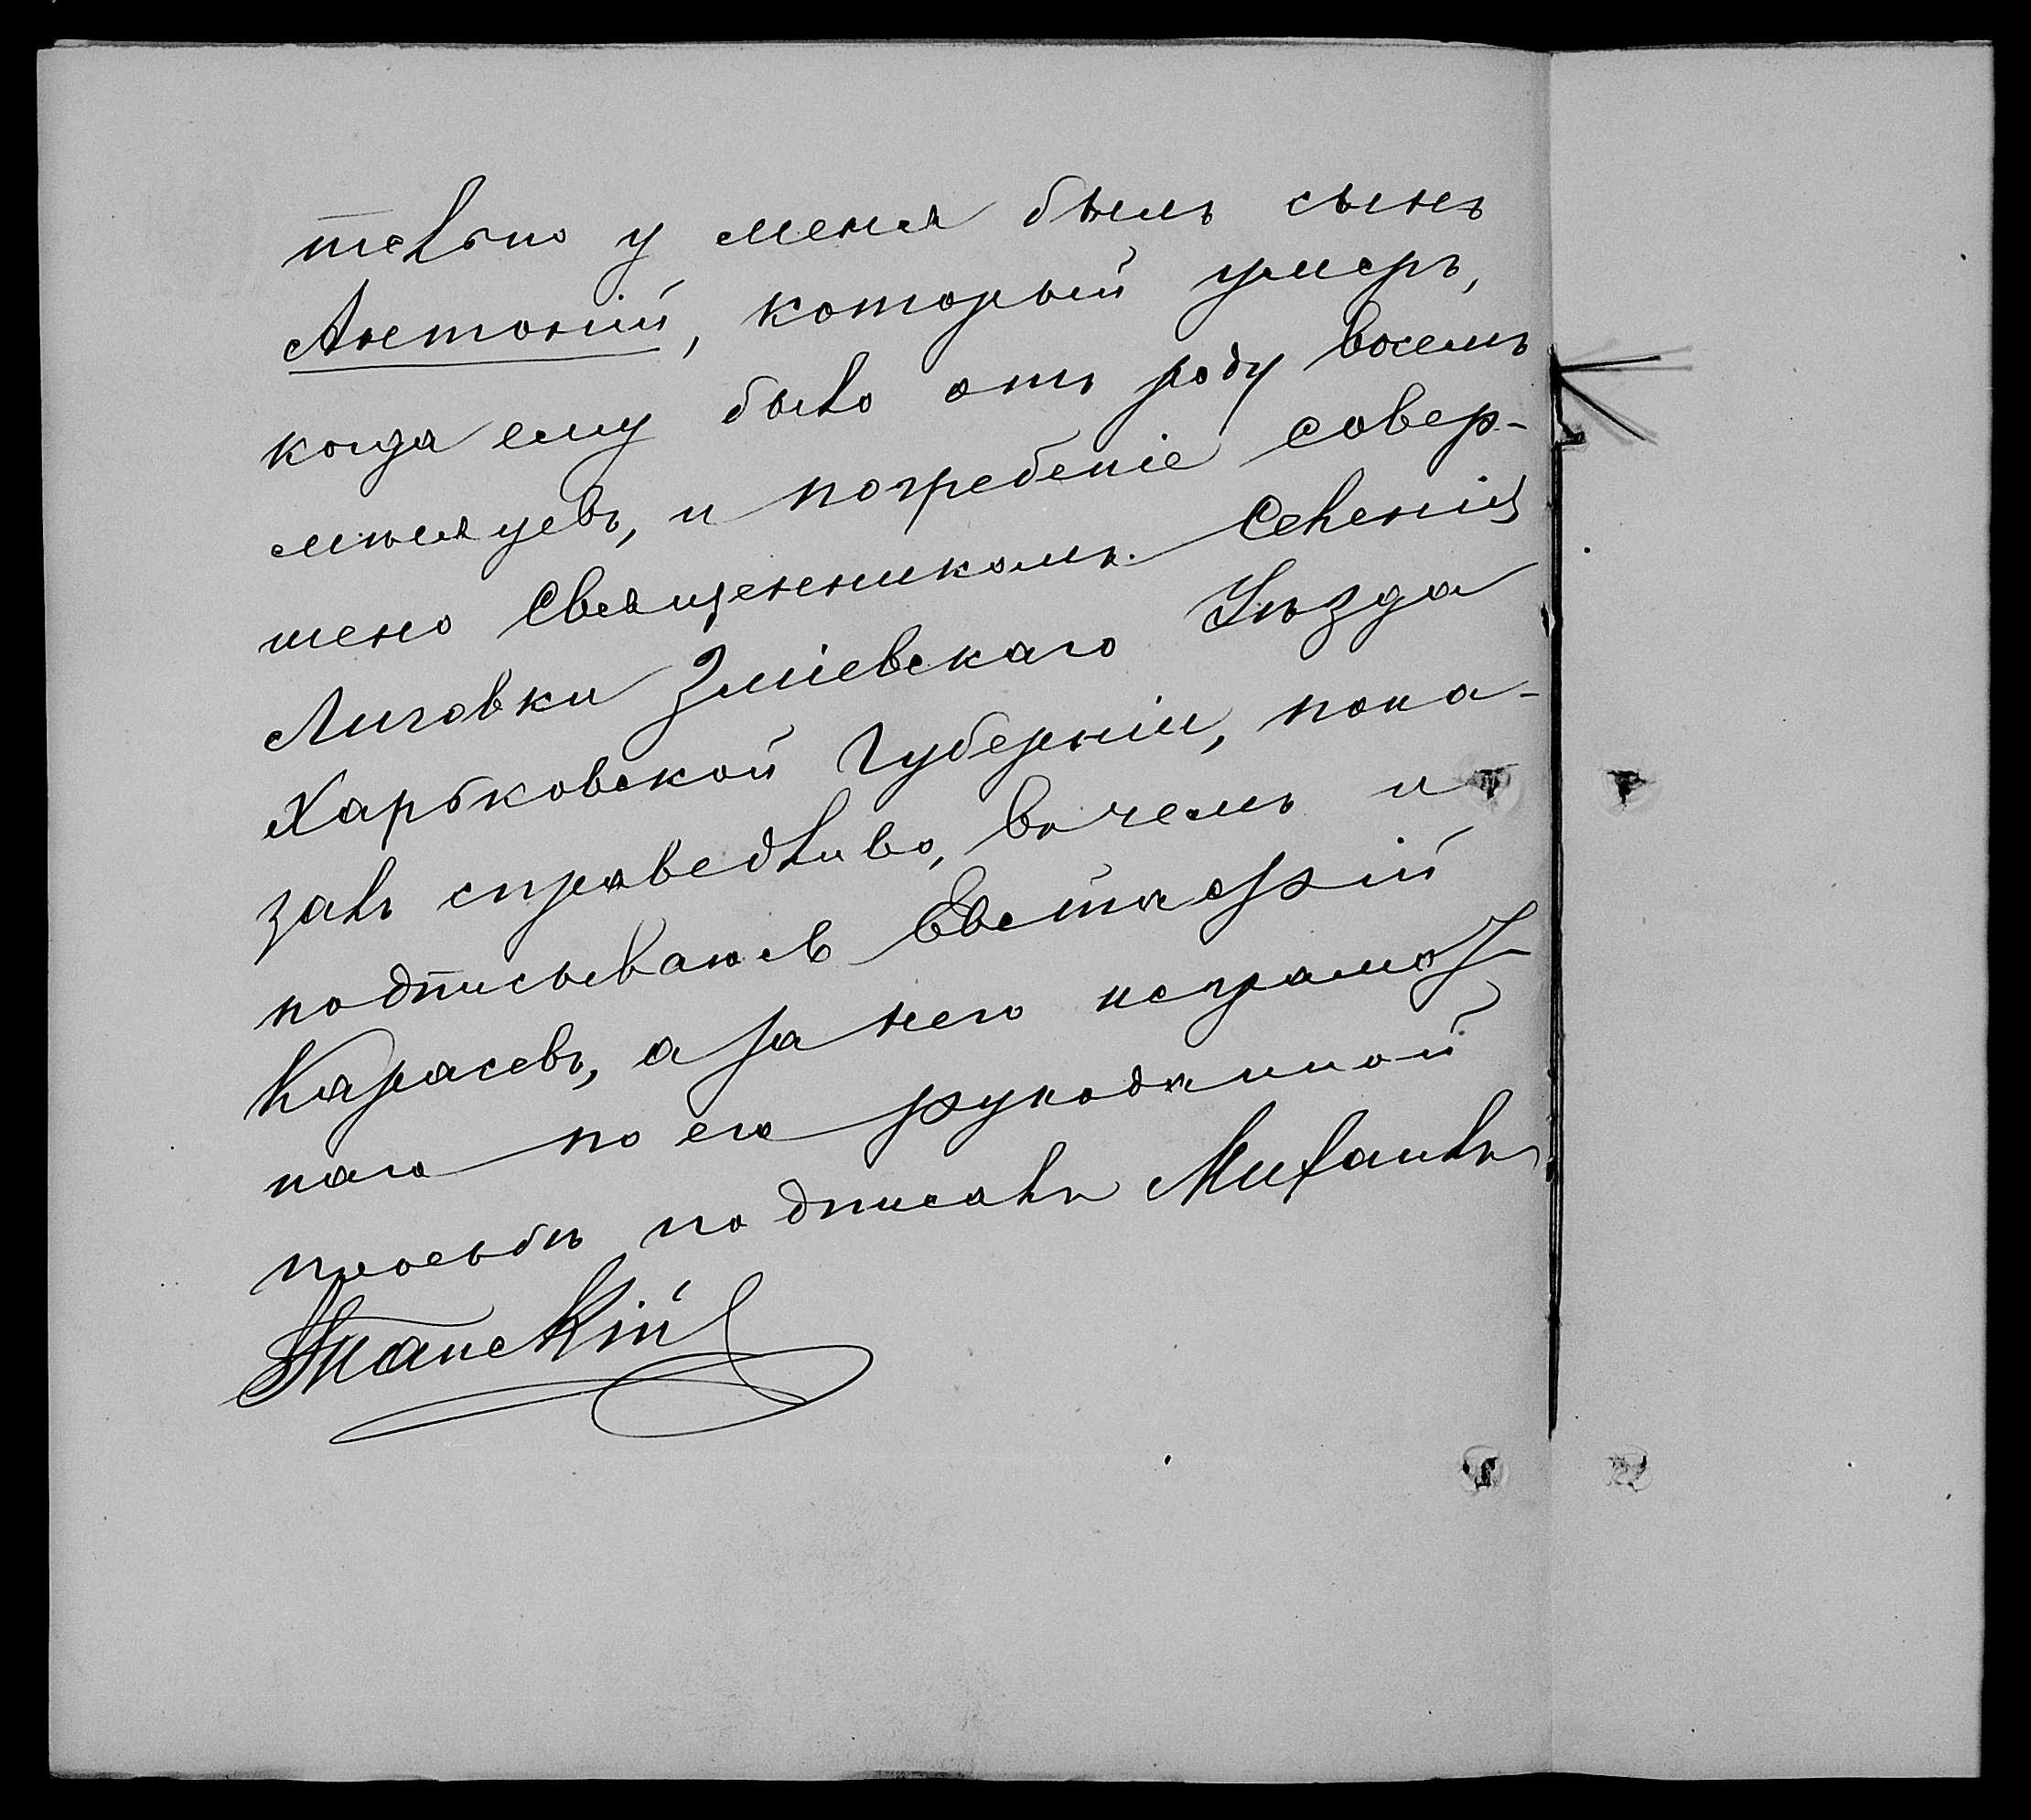 тельно у меня былъ сынъ
Антоній, который умеръ,
когда ему было отъ роду восемь
мѣсяцевъ, и погребеніе совер-
шено Священникомъ Селенія
Лиговки Зміевскаго Уѣзда
Харьковской Губерніи, пока-
залъ справедливо, въ чемъ и
подписываюсь Евстафій
Карасевъ, а за него неграмот-
наго по его рукоданной
просьбѣ подписалъ Михаилъ